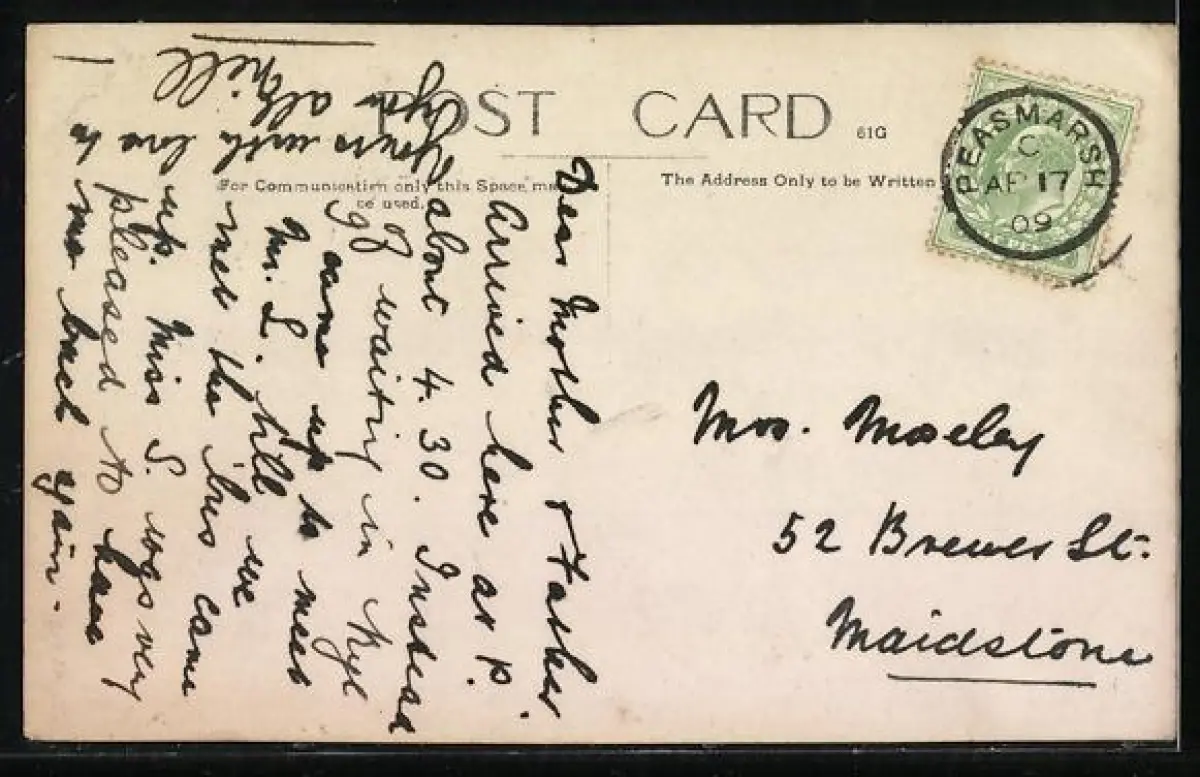 POST CARD
61G
For Communication only this Space may
be used.
The Address Only to be Written
PEASMARSH
C
AP 17
09
Dear Mother & Father.
Arrived here at P.
about 4.30. Instead
of waiting in Rye
I came up to meet
Mr. S. till we
met the bus come
up. Miss S. was very
pleased to have
me back again.
Yours with love to
all
Nell
Mrs. Moseley
52 Brewer St.
Maidstone